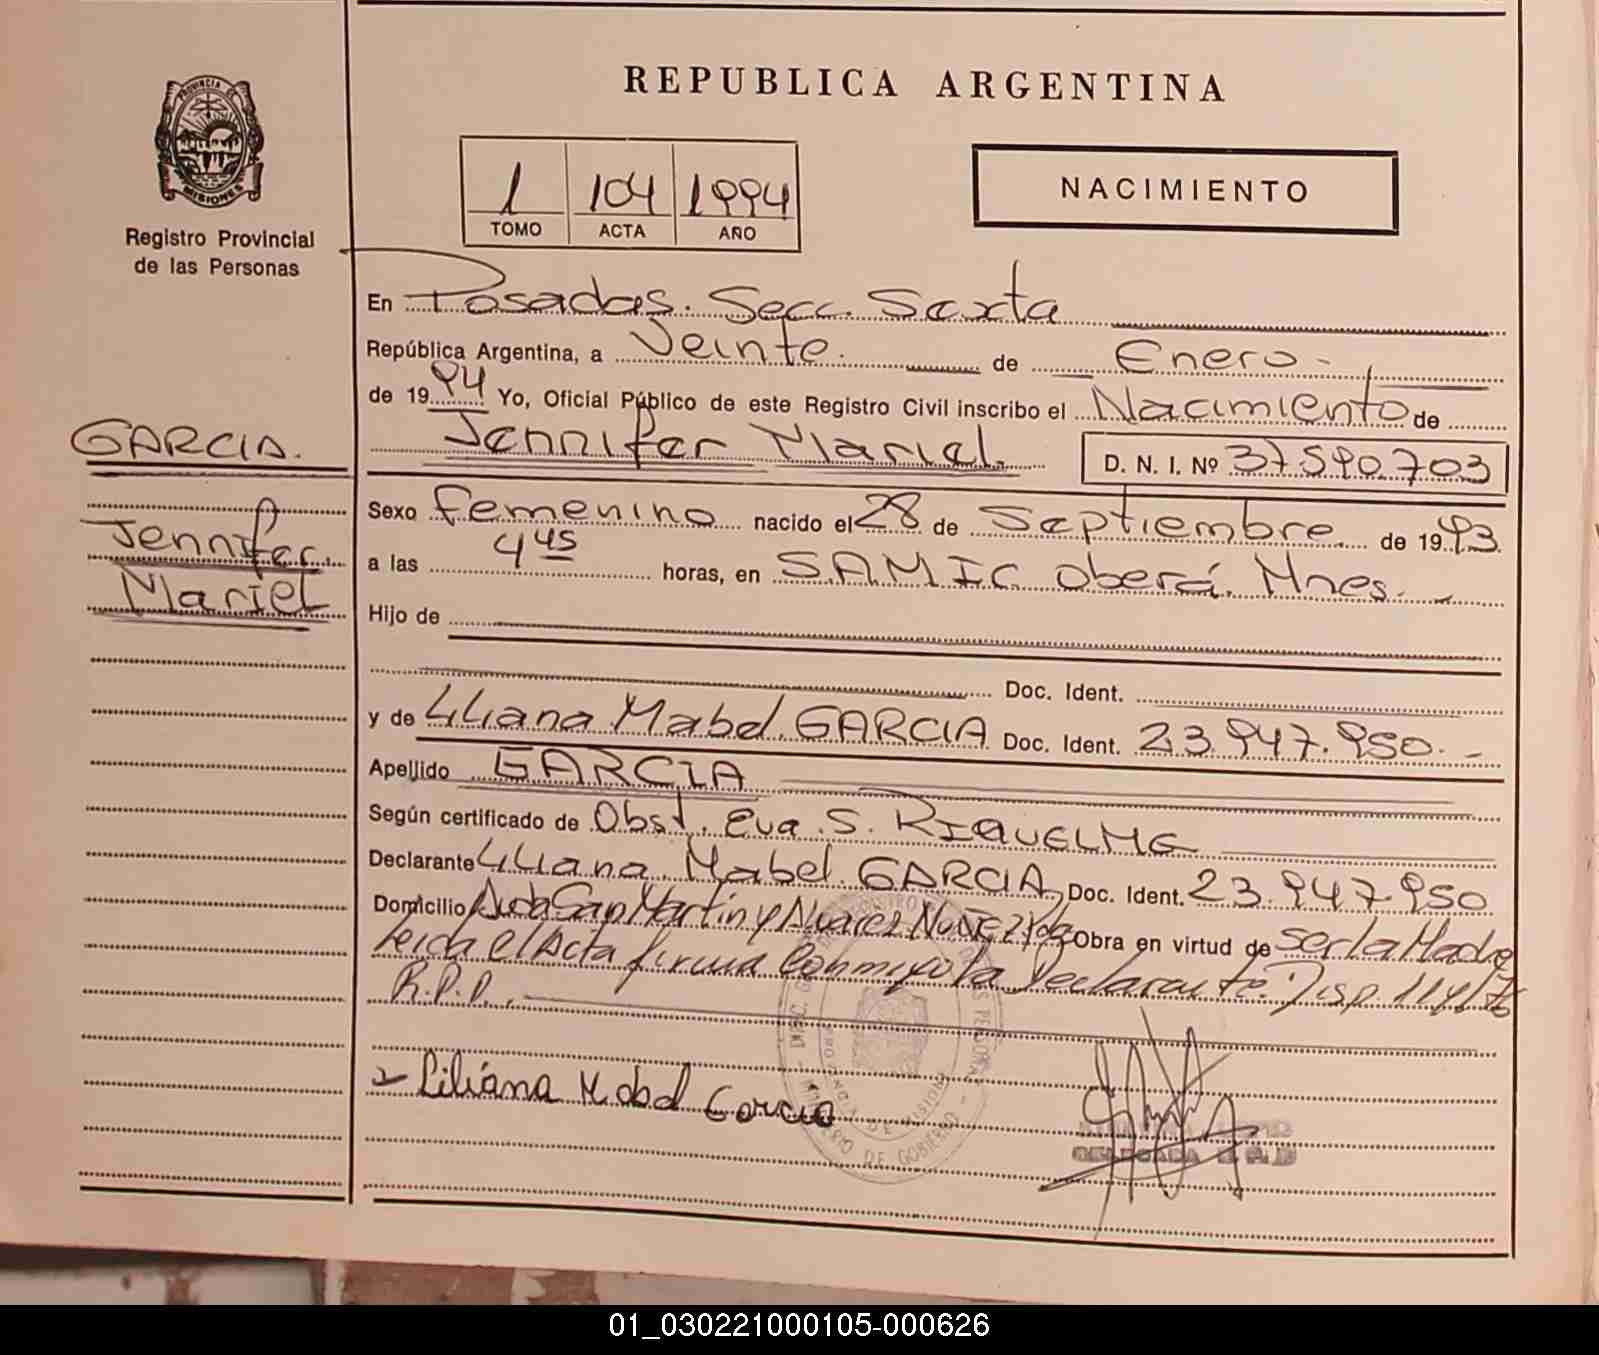 REPUBLICA ARGENTINA
PROVINCIA DE MISIONES
Registro Provincial
de las Personas
1 104 1994
TOMO ACTA AÑO
NACIMIENTO
En Posadas. Secc. Sexta
República Argentina, a Veinte. de Enero.-
de 1994 Yo, Oficial Público de este Registro Civil inscribo el Nacimiento de
GARCIA.
Jennifer Mariel
Jennifer Mariel. D. N. I. Nº 37.590.703
Sexo Femenino nacido el 28 de Septiembre. de 1993.
a las 4 45 horas, en S.A.M.I.C. Oberá. Mnes. -
Hijo de
Doc. Ident.
y de Liliana Mabel GARCIA Doc. Ident. 23.947.950.-
Apellido GARCIA
Según certificado de Obst. Eva S. RIQUELME
Declarante Liliana Mabel GARCIA Doc. Ident. 23.947.950
Domicilio Avda San Martin y Alvarez Nuñez Pdas Obra en virtud de ser la Madre
leida el Acta firma conmigo la Declarante. Disp.
R.P.P.
Liliana Mabel Garcia
DELEGADA
01_030221000105-000626